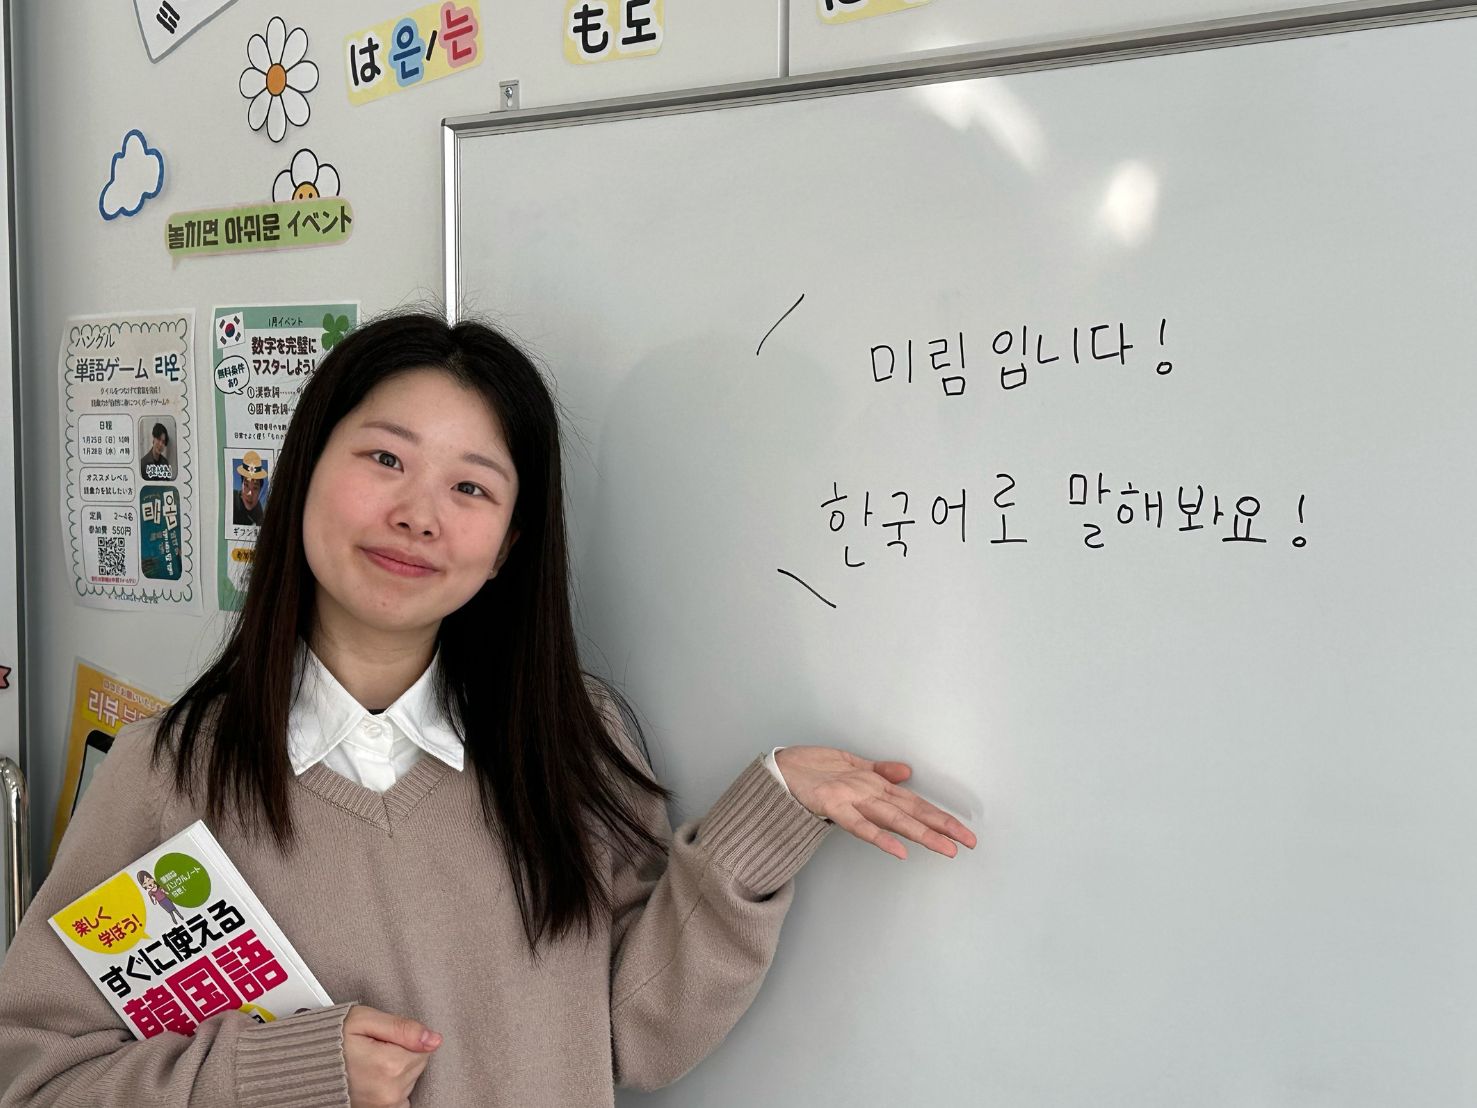 は 은/는
も 도
놓치면 아쉬운 イベント
ハングル
単語ゲーム 라온
タイルをつなげて言葉を完成!
日程
1月25日(日) 10時
1月28日(水) 17時
オススメレベル
語彙力を試したい方
定員 2~4名
参加費 550円
라온
1月イベント
数字を完璧に
マスターしよう!
無料条件
あり
①漢数詞
②固有数詞
리뷰
미림입니다!
한국어로 말해봐요!
楽しく
学ぼう!
ハングルノート
付き!
すぐに使える
韓国語